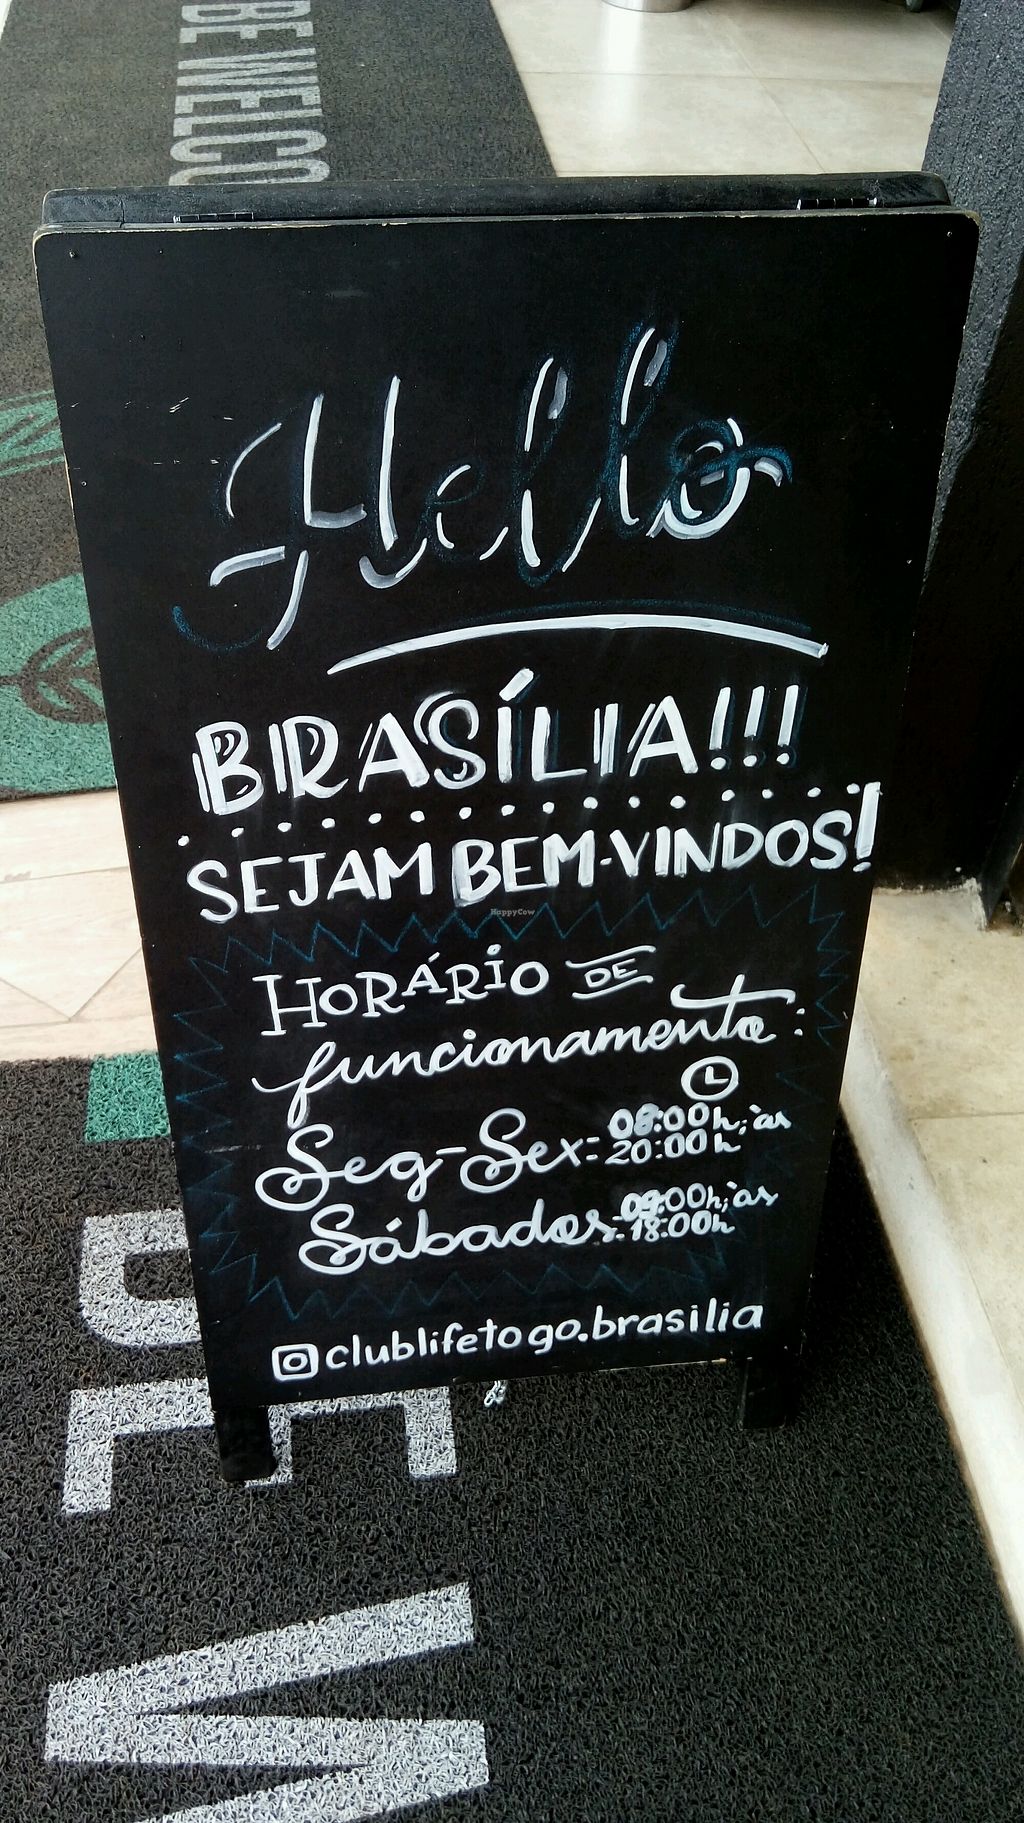 BE WELCO
Hello
BRASÍLIA!!!
SEJAM BEM-VINDOS!
HappyCow
HORÁRIO DE
funcionamento:
Seg-Sex: 08:00h; às
20:00h
Sábados: 09:00h; às
18:00h
clublifetogo.brasilia